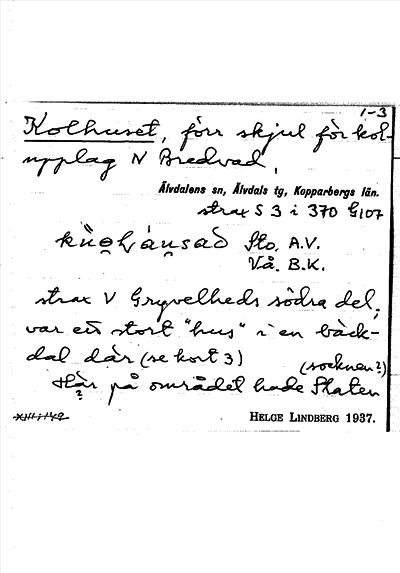 1-3
Kolhuset, förr skjul för kol-
upplag N Bredvad,
Älvdalens sn, Älvdals tg, Kopparbergs län.
strax S 3 i 370 G107
Sto. A.V.
Vå. B.K.
strax V Gryvelheds södra del;
var ett stort "hus" i en bäck-
dal där (se kort 3)
(socknen?)
Här på området hade Staten
?
HELGE LINDBERG 1937.